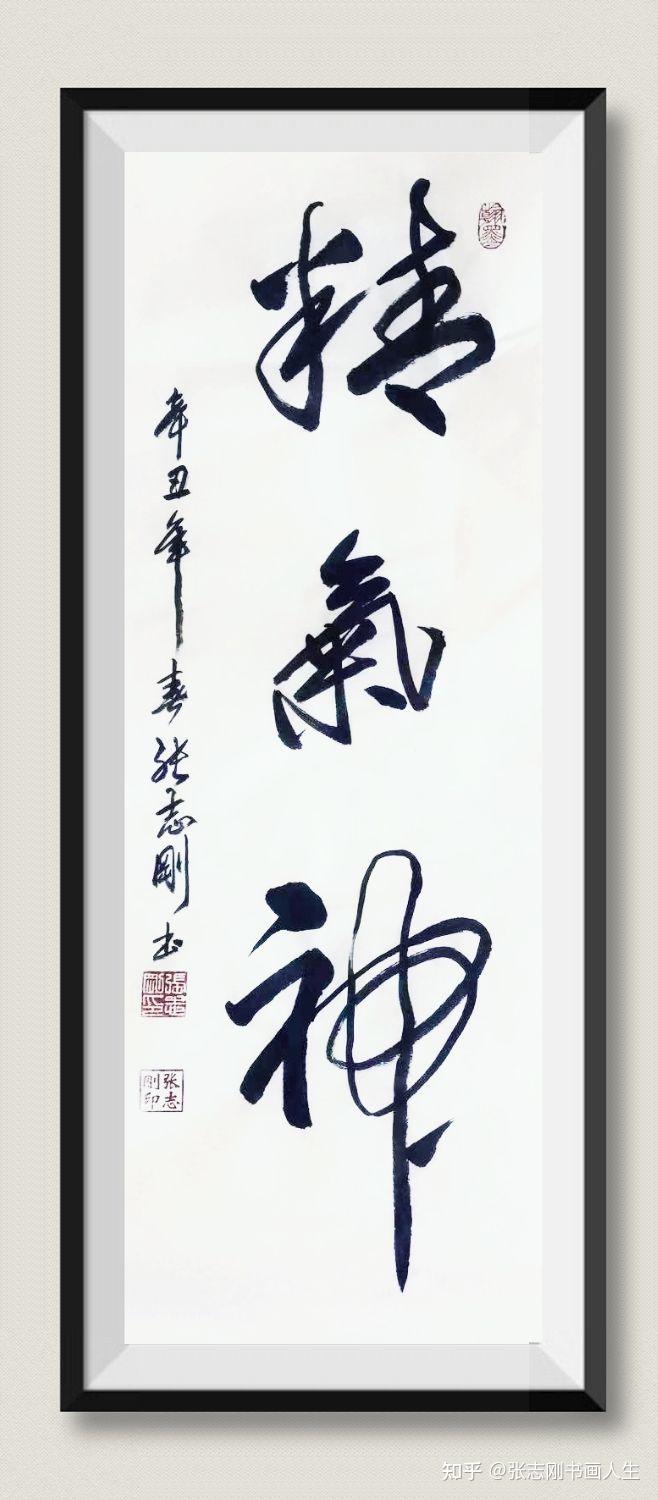 精氣神
翰墨
辛丑年春張志剛书
張志剛印
张志剛印
知乎 @张志刚书画人生